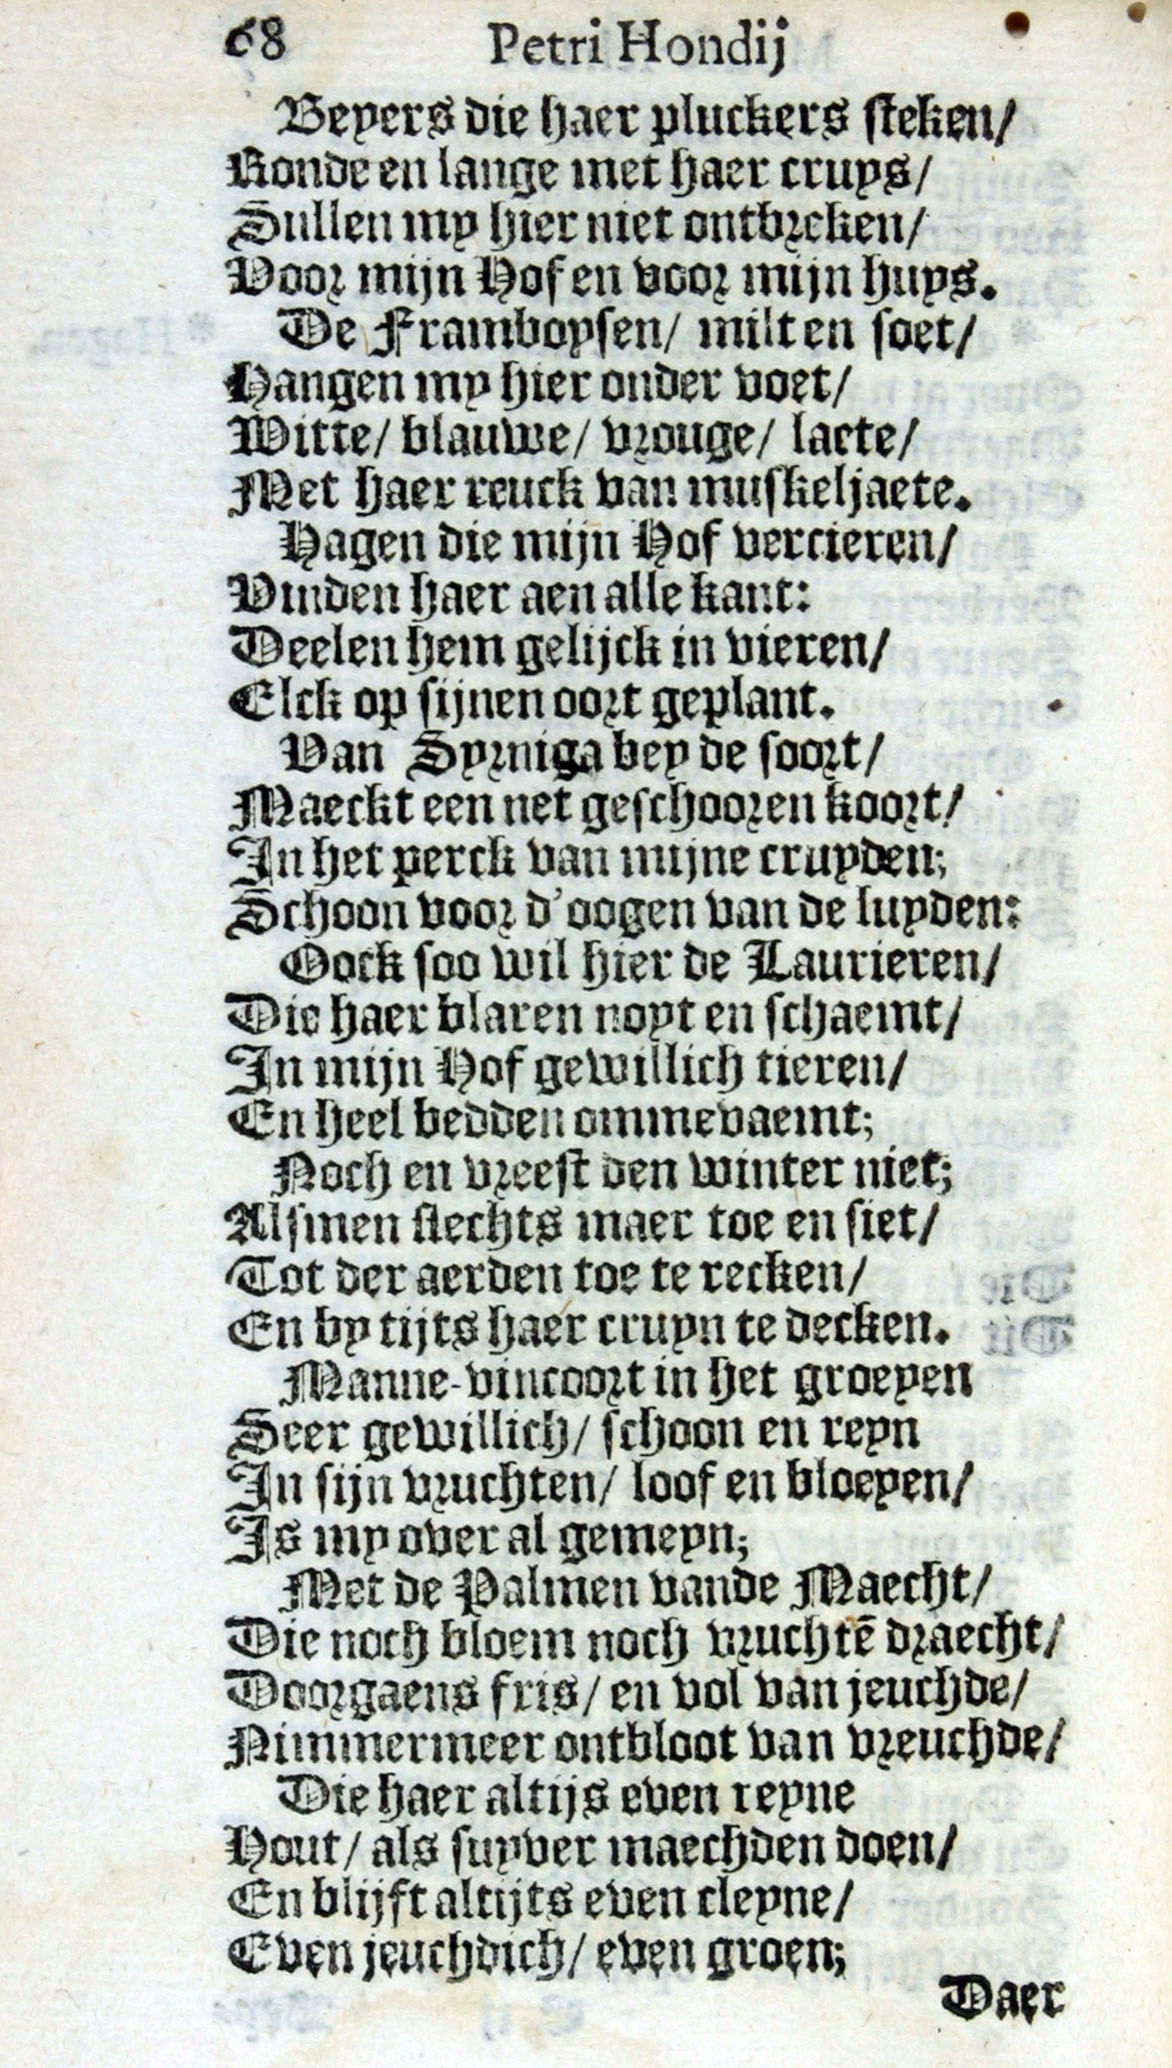 68 Petri Hondij
Beyers die haer pluckers steken/
Ronde en lange met haer cruys/
Sullen my hier niet ontbreken/
Voor mijn Hof en voor mijn huys.
De Framboysen/ milt en soet/
Hangen my hier onder voet/
Witte/ blauwe/ vrouge/ laete/
Met haer reuck van muskeljaete.
Hagen die mijn Hof vercieren/
Vinden haer aen alle kant:
Deelen hem gelijck in vieren/
Elck op sijnen oort geplant.
Van Syrniga bey de soort/
Maeckt een net geschooren koort/
In het perck van mijne cruyden;
Schoon voor d'oogen van de luyden:
Oock soo wil hier de Laurieren/
Die haer blaren noyt en schaemt/
In mijn Hof gewillich tieren/
En heel bedden ommevaemt;
Noch en vreest den winter niet;
Alsmen slechts maer toe en siet/
Tot der aerden toe te recken/
En by tijts haer cruyn te decken.
Manne-vincoort in het groeyen
Seer gewillich/ schoon en reyn
In sijn vruchten/ loof en bloeyen/
Is my over al gemeyn;
Met de Palmen vande Maecht/
Die noch bloem noch vruchtē draecht/
Doorgaens fris/ en vol van jeuchde/
Nimmermeer ontbloot van vreuchde/
Die haer altijs even reyne
Hout/ als suyver maechden doen/
En blijft altijts even cleyne/
Even jeuchdich/ even groen;
Daer